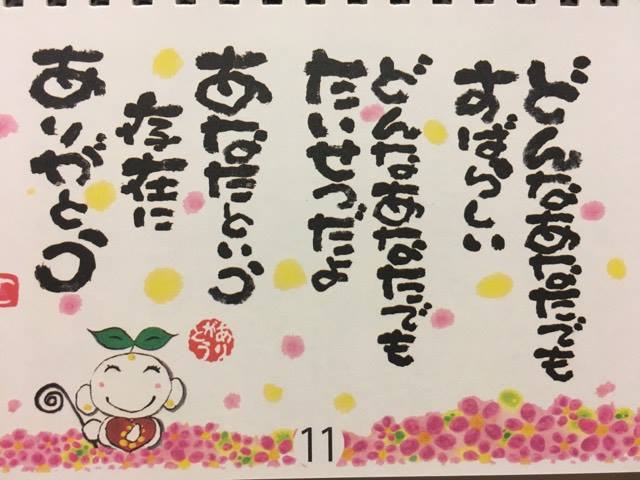 どんなあなたでも
すばらしい
どんなあなたでも
たいせつだよ
あなたという
存在に
ありがとう
ありがとう
11